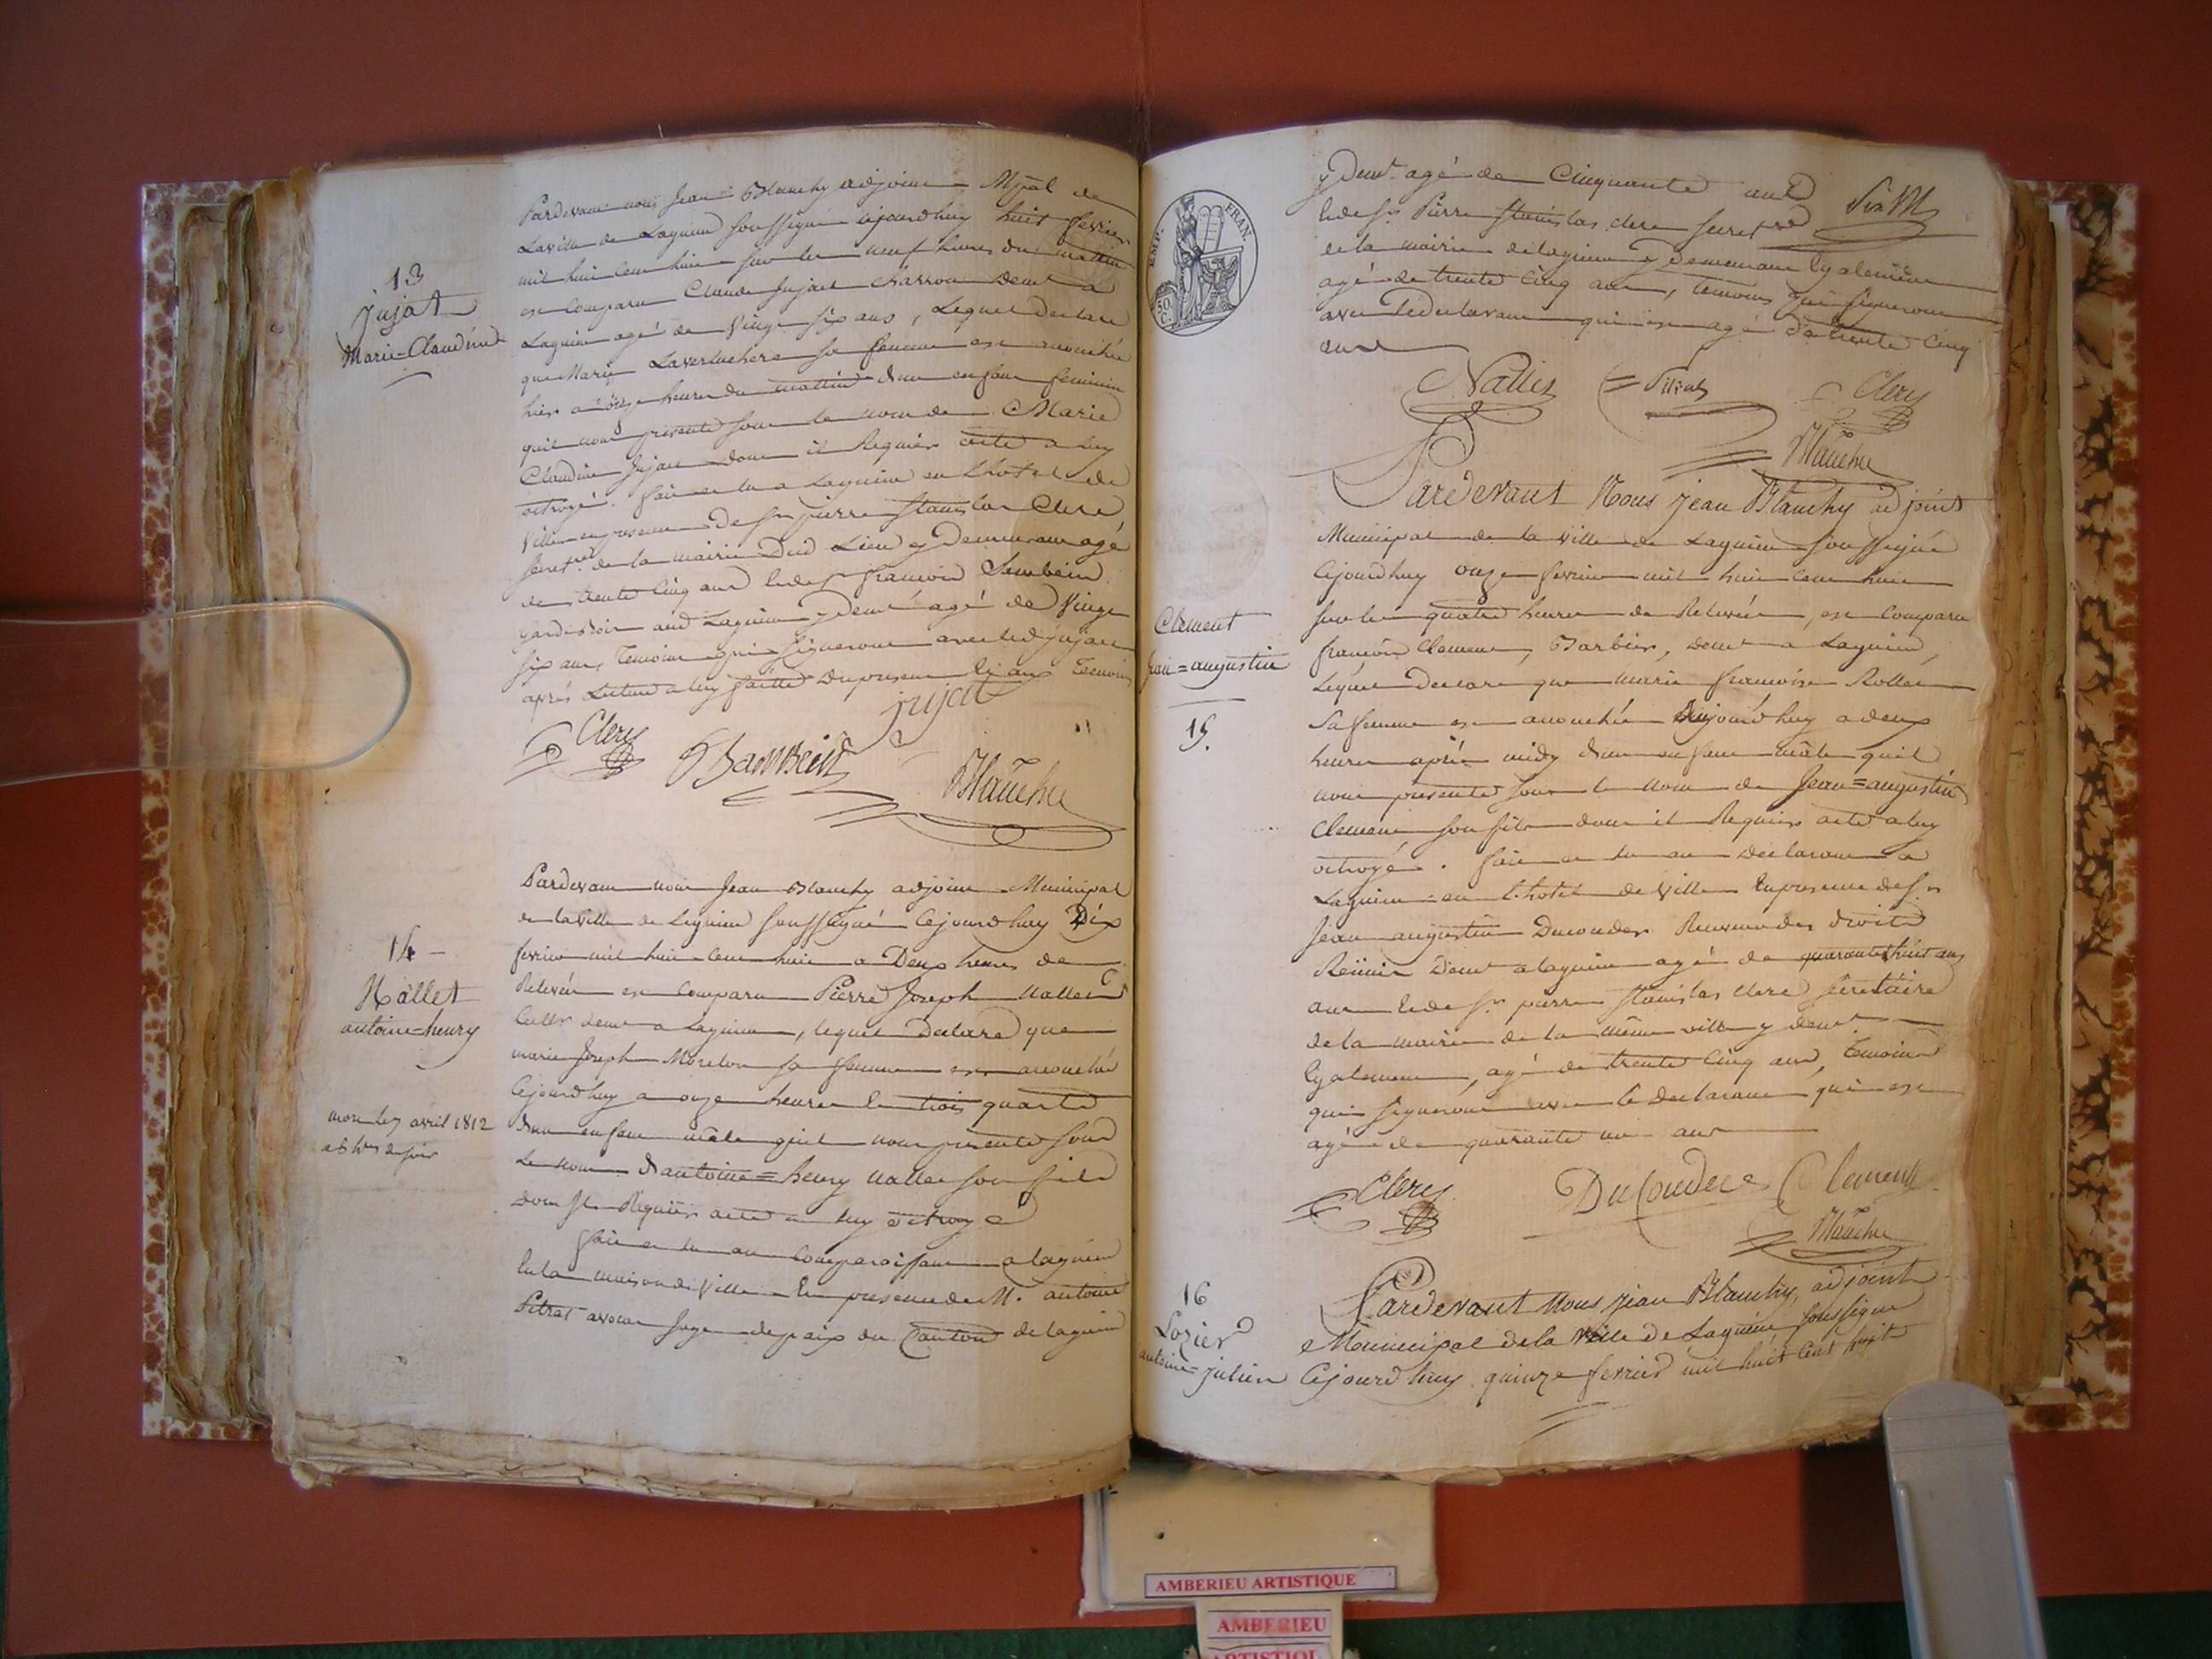 13
jujat
Marie=Claudine
Pardevant nous Jean Blanchy adjoint Mpal de
La ville de Lagnieu soussigné cejourdhuy huit fevrier
mil huit cent huit sur les neuf heures du mattin
est comparu Claude Jujat charron demt a
Lagnieu agé de Vingt six ans, Lequel declare
que Marie Laverluchere sa femme est accouchée
hier a onze heures du mattin d'un enfant feminin
quil nous presente sous le nom de Marie
Claudine Jujat dont il Requier acte a luy
octroyé. fait et lu a Lagnieu en L'hotel de
Ville en presence de Sr pierre Stanislas Clerc
Secretre de la mairie Dud Lieu y Demeurant agé
de trente Cinq ans et de Sr francois Jambein
Garde aud Lagnieu y demt agé de Vingt
six ans, Temoins qui signeront avec led jujat
après Lecture a luy faitte en presence des Temoins
jujat
Clerc
Blanchy
14
Nallet
antoine=henry
mort le 7 avril 1812
a 8 hres du soir
Pardevant nous Jean Blanchy adjoint Municipal
de la Ville de Lagnieu soussigné Cejourdhuy Dix
fevrier mil huit cent huit a Deux heures de
Relevée est comparu Pierre Joseph Nallet
demt a Lagnieu, lequel Declare que
marie Joseph Morelon sa femme est accouchée
Cejourdhuy a onze heures et trois quarts
d'un enfant mâle quil nous presente sous
Le nom d'antoine=henry Nallet son fils
dont Il Requier acte a luy octroyé
fait et lu au comparoissant a lagnieu
En la maison de Ville En presence de M. antoine
Sitrat avocat Juge de paix du Canton de lagnieu
EMP. FRAN.
50 C.
y Demt agé de Cinquante ans
et de Sr Pierre Stanislas clerc secretre
de la mairie de lagnieu y Demeurant Egalement
agé de trente Cinq ans, temoins qui signeront
avec le declarant qui est agé de trente Cinq
ans
Nallet Sitrat Clerc
Blanchy
Clement
Jean=augustin
15.
Pardevant Nous jean Blanchy adjoint
Municipal de la Ville de Lagnieu soussigné
Cejourdhuy onze fevrier mil huit cent huit
sur les quatre heures de Relevée, est Comparu
francois Clement, Barbier, demt a Lagnieu,
Lequel Declare que marie francoise Rollet
Sa femme est accouchée Aujourd'huy a deux
heures après midy d'un enfant mâle quil
nous presente sous le nom de Jean=augustin
Clement son fils dont il Requier acte a luy
octroyé. fait et lu au Declarant a
Lagnieu en L'hotel de Ville En presence de Sr
Jean augustin Ducouder Receveur des droits
Réunis Demt a lagnieu agé de quarante huit ans
et de Sr pierre Stanislas Clerc Secretaire
de la mairie de la même ville y demt
Egalement, agé de trente Cinq ans, Temoins
qui signeront avec le Declarant qui est
agé de quarante un ans
Clerc DuCouder Clement
Blanchy
16
Lozier
antoine=julien
Pardevant Nous jean Blanchy, adjoint
Municipal de la Ville de Lagnieu soussigné
Cejourd'huy quinze fevrier mil huit Cent huit
AMBERIEU ARTISTIQUE
AMBERIEU